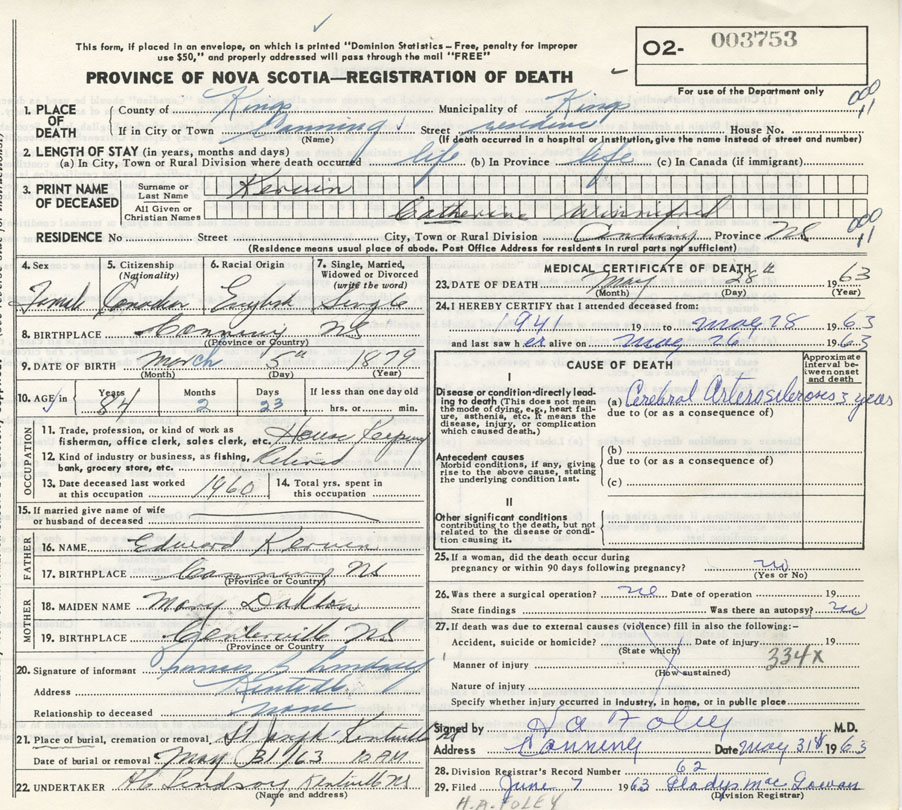 This form, if placed in an envelope, on which is printed "Dominion Statistics – Free, penalty for improper
use $50," and properly addressed will pass through the mail "FREE"
PROVINCE OF NOVA SCOTIA—REGISTRATION OF DEATH
O2- 003753
For use of the Department only
1. PLACE OF DEATH County of Kings Municipality of Kings
If in City or Town Canning Street residence House No.
(Name) (If death occurred in a hospital or institution, give the name instead of street and number)
2. LENGTH OF STAY (in years, months and days)
(a) In City, Town or Rural Division where death occurred life (b) In Province life (c) In Canada (if immigrant)
3. PRINT NAME OF DECEASED Surname or Last Name Kerwin
All Given or Christian Names Catherine Winnifred
RESIDENCE No Street City, Town or Rural Division Canning Province NS
(Residence means usual place of abode. Post Office Address for residents in rural parts not sufficient)
4. Sex 5. Citizenship (Nationality) 6. Racial Origin 7. Single, Married, Widowed or Divorced (write the word)
Female Canadian English Single
8. BIRTHPLACE Canning NS
(Province or Country)
9. DATE OF BIRTH March 5th 1879
(Month) (Day) (Year)
10. AGE in Years Months Days If less than one day old
84 2 23 hrs. or min.
OCCUPATION
11. Trade, profession, or kind of work as fisherman, office clerk, sales clerk, etc. House Keeping
12. Kind of industry or business, as fishing, bank, grocery store, etc. Retired
13. Date deceased last worked at this occupation 1960 14. Total yrs. spent in this occupation
15. If married give name of wife or husband of deceased
FATHER
16. NAME Edward Kerwin
17. BIRTHPLACE Canning NS
(Province or Country)
MOTHER
18. MAIDEN NAME Mary Dalton
19. BIRTHPLACE Centerville NS
(Province or Country)
20. Signature of informant Lindsay
Address Kentville
Relationship to deceased none
21. Place of burial, cremation or removal St Joseph Kentville NS
Date of burial or removal May 31/63 10 AM
22. UNDERTAKER Lindsay Kentville NS
(Name and address)
MEDICAL CERTIFICATE OF DEATH
23. DATE OF DEATH May 28th 1963
(Month) (Day) (Year)
24. I HEREBY CERTIFY that I attended deceased from:
1941 19 to May 28 1963
and last saw her alive on May 26 1963
CAUSE OF DEATH Approximate interval between onset and death
I
Disease or condition directly leading to death (This does not mean the mode of dying, e.g., heart failure, asthenia, etc. It means the disease, injury, or complication which caused death.)
(a) Cerebral Arterosclerosis 3 years
due to (or as a consequence of)
Antecedent causes
Morbid conditions, if any, giving rise to the above cause, stating the underlying condition last.
(b)
due to (or as a consequence of)
(c)
II
Other significant conditions
contributing to the death, but not related to the disease or condition causing it.
25. If a woman, did the death occur during pregnancy or within 90 days following pregnancy? no
(Yes or No)
26. Was there a surgical operation? no Date of operation 19
State findings Was there an autopsy? no
27. If death was due to external causes (violence) fill in also the following:–
Accident, suicide or homicide? Date of injury 19
(State which)
334X
Manner of injury
(How sustained)
Nature of injury
Specify whether injury occurred in industry, in home, or in public place
Signed by H A Foley M.D.
Address Canning Date May 31st 1963
28. Division Registrar's Record Number 62
29. Filed June 7 1963 Gladys MacGowan
(Division Registrar)
H.A. FOLEY